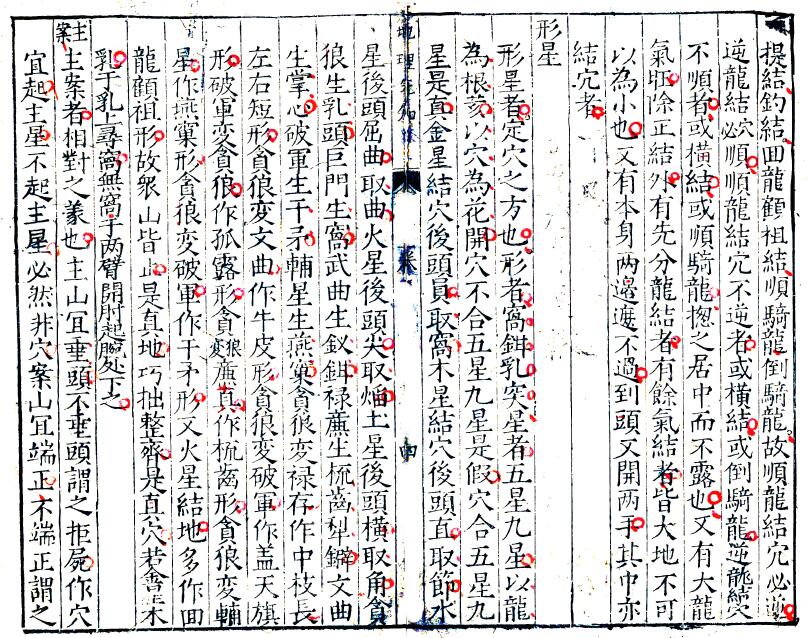 提結鈎結回龍顧祖結順騎龍倒騎龍故順龍結穴必逆
逆龍結穴必順順龍結穴不逆者或橫結或倒騎龍逆龍結穴
不順者或橫結或順騎龍揔之居中而不露也又有大龍
氣旺除正結外有先分龍結者有餘氣結者皆大地不可
以為小也又有本身两邉遮不過到頭又開两手其中亦
結穴者
形星
形星者定穴之方也形者窩鉗乳突星者五星九星以龍
為根荄以穴為花開穴不合五星九星是假穴合五星九
星是真金星結穴後頭員取窩木星結穴後頭直取節水
地理 四
星後頭屈曲取曲火星後頭尖取熖土星後頭橫取角貪
狼生乳頭巨門生窩武曲生釵鉗禄廉生梳齒犁鐴文曲
生掌心破軍生干矛輔星生燕窠貪狼变禄存作中枝長
左右短形貪狼变文曲作牛皮形貪狼变破軍作盖天旗
形破軍变貪狼作孤露形貪狼变廉貞作梳齒形貪狼变輔
星作燕窠形貪狼变破軍作干矛形又火星結地多作回
龍顧祖形故衆山皆止是真地巧拙整齊是真穴若㑹來
乳于乳上尋窩無窩于两臂開肘起腕处下之
主案
主案者相對之義也主山冝垂頭不垂頭謂之拒屍作穴
冝起主星不起主星必然非穴案山冝端正不端正謂之